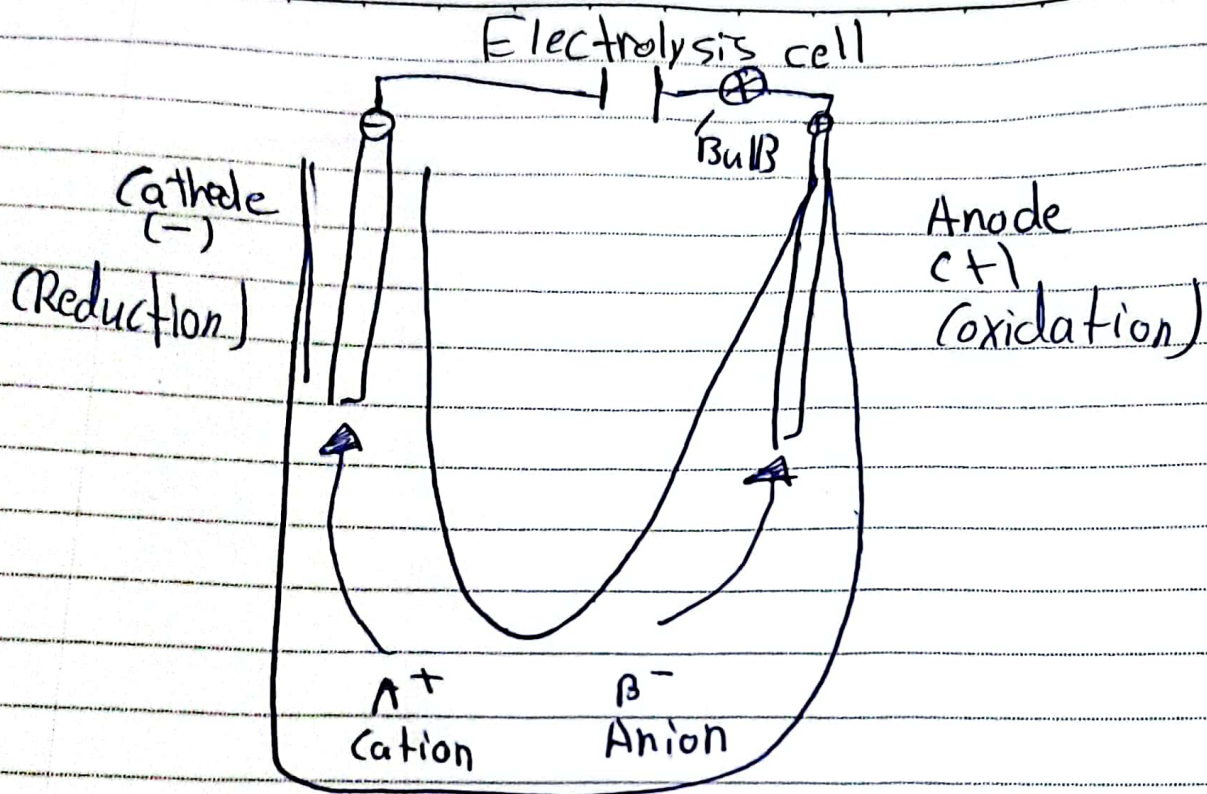 Electrolysis cell
Bulb
Cathede
(-)
(Reduction)
Anode
(+)
(oxidation)
A+
Cation
B-
Anion